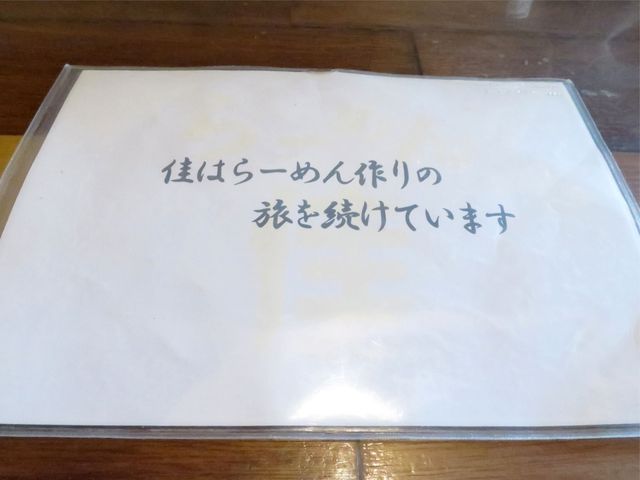 佳はらーめん作りの
旅を続けています